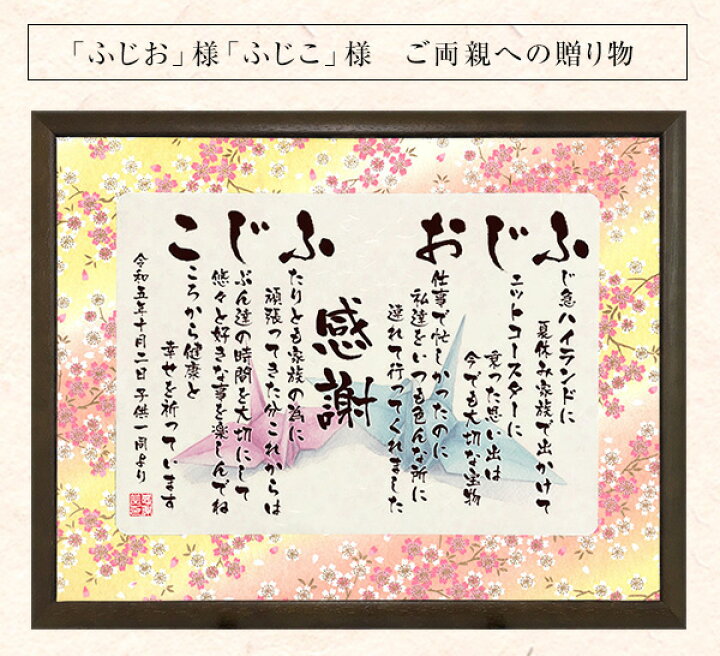 「ふじお」様「ふじこ」様　ご両親への贈り物
ふじお
じ急ハイランドに
夏休み家族で出かけて
ェットコースターに
乗った思い出は
今でも大切な宝物
仕事で忙しかったのに
私達をいつも色んな所に
連れて行ってくれました
感謝
ふじこ
たりとも家族の為に
頑張ってきた分これからは
ぶん達の時間を大切にして
悠々と好きな事を楽しんでね
ころから健康と
幸せを祈っています
令和五年十月二日 子供一同より